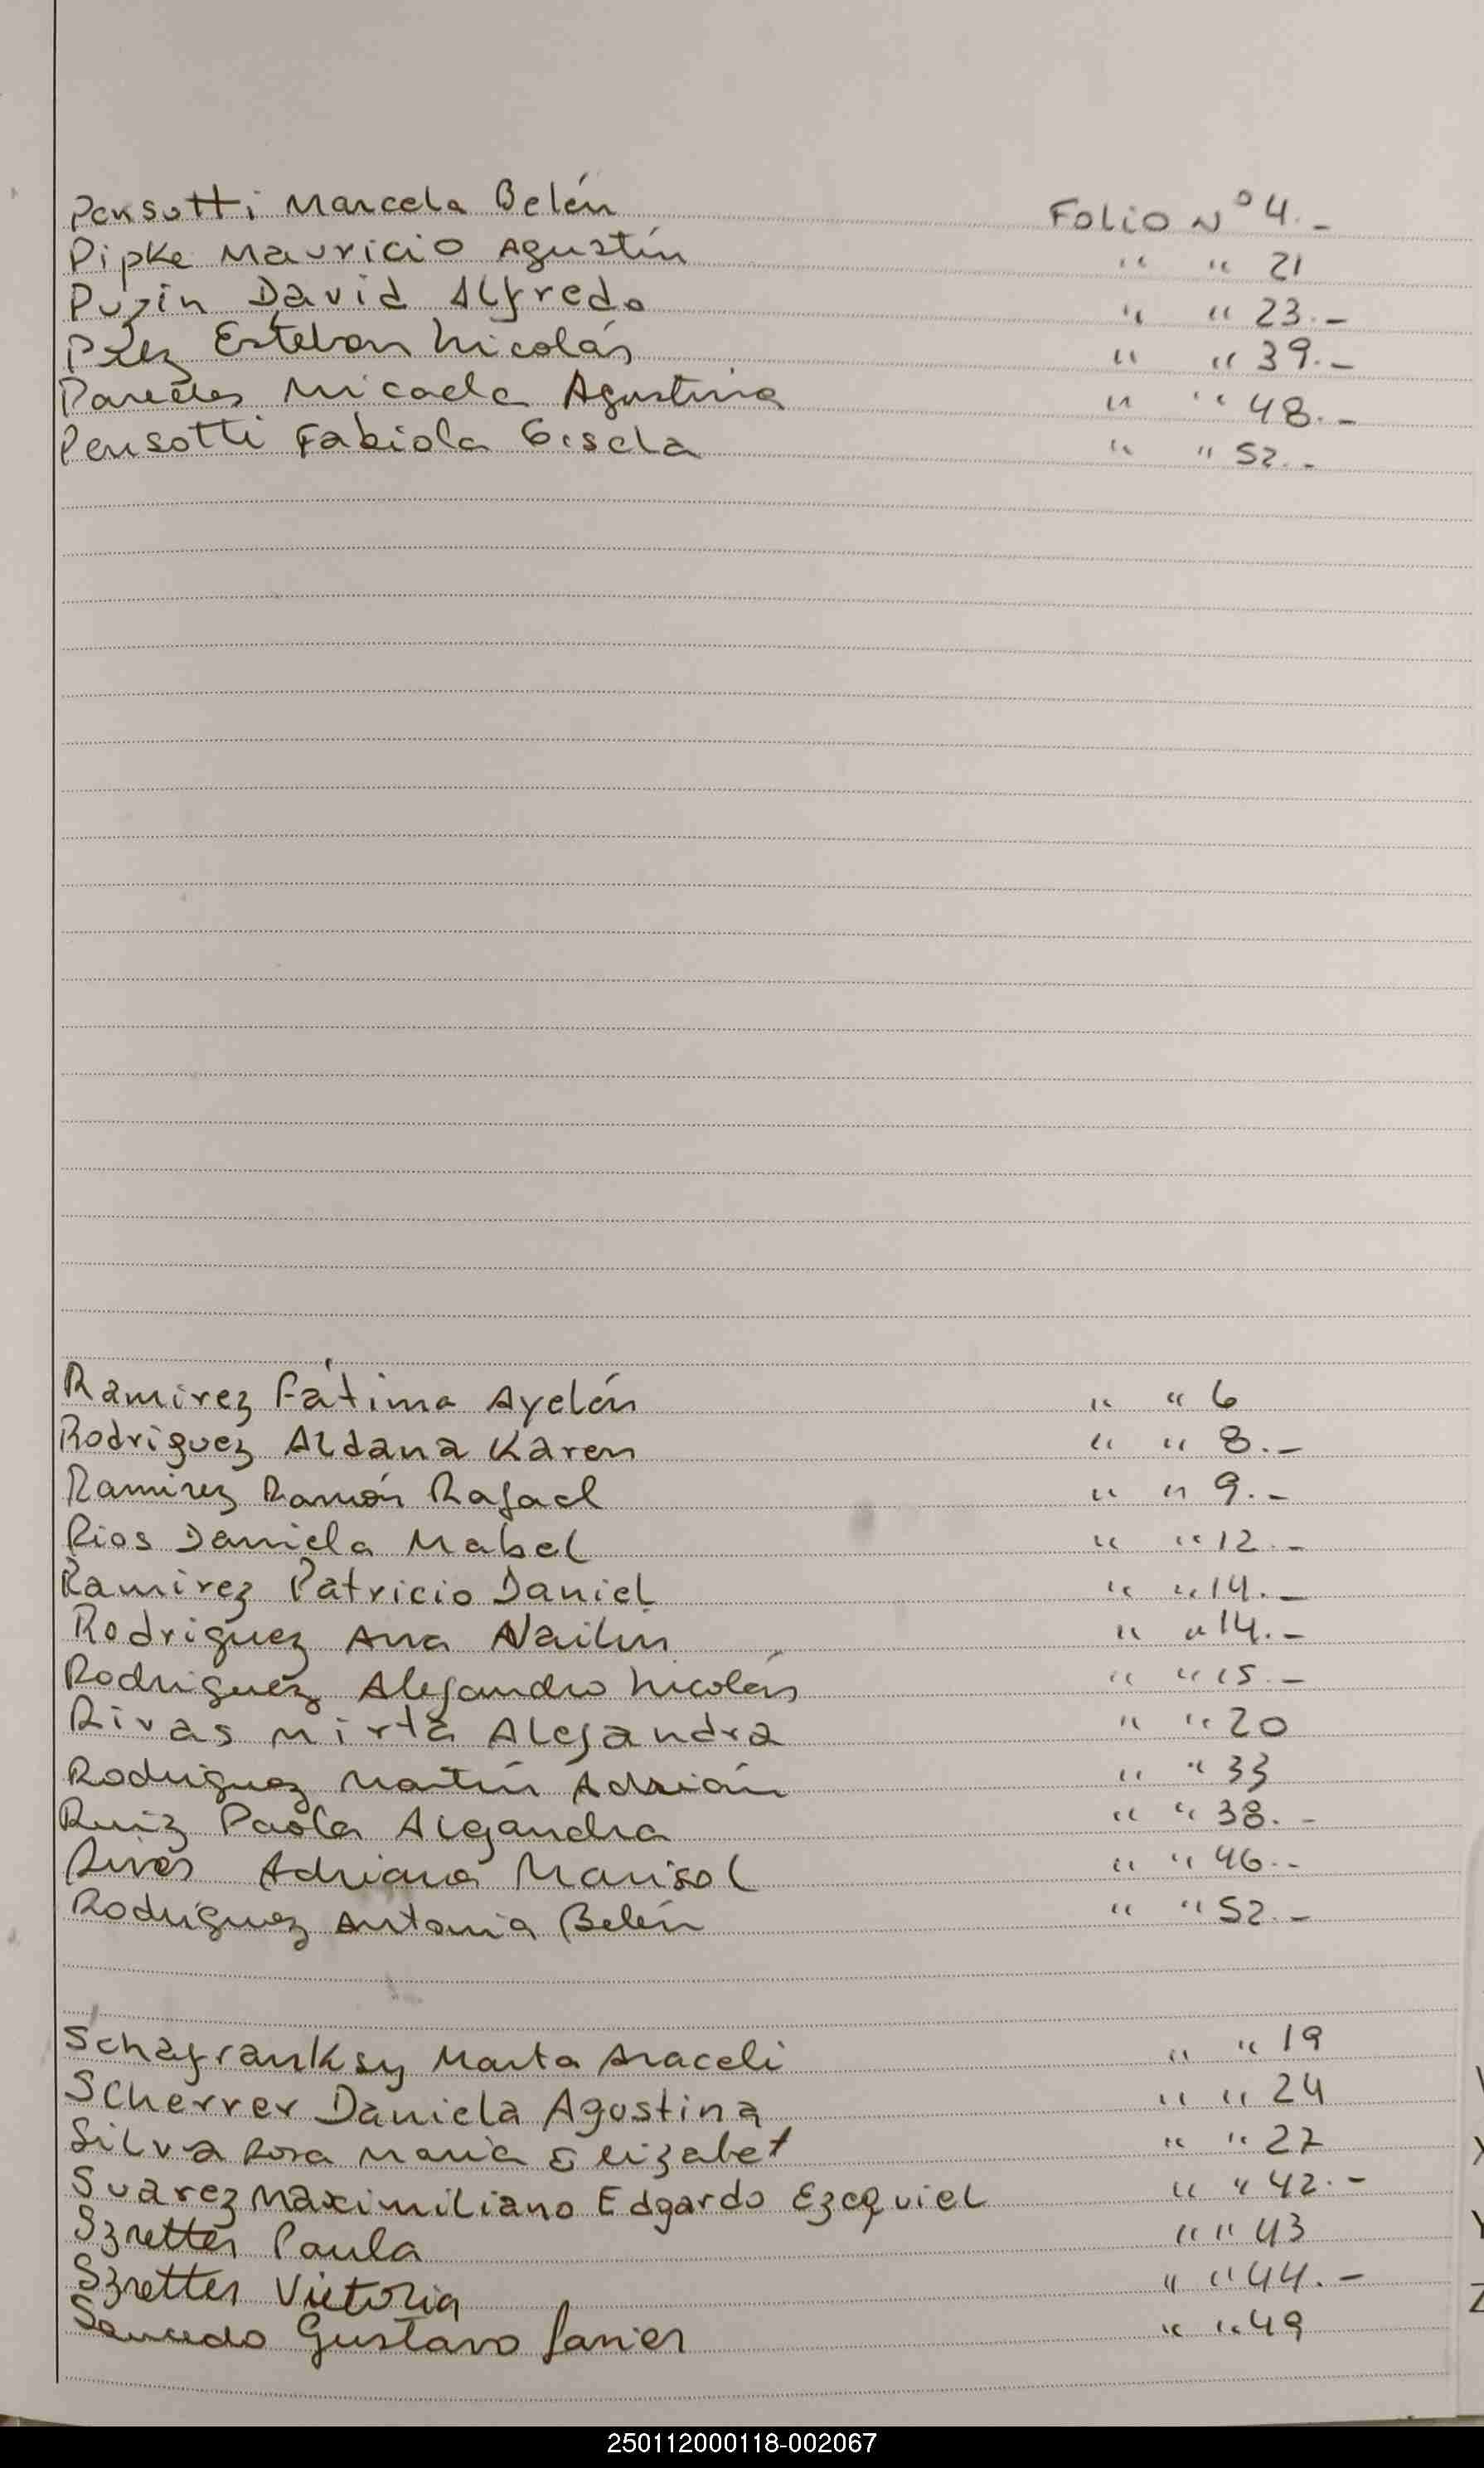 Pensotti Marcela Belén Folio Nº 4.-
Pipke Mauricio Agustín " " 21
Puzin David Alfredo " " 23.-
Esteban Nicolás " " 39.-
Paredes Micaela Agustina " " 48.-
Pensotti Fabiola Gisela " " 52.-
Ramirez Fátima Ayelén " " 6
Rodriguez Aldana Karen " " 8.-
Ramirez Ramón Rafael " " 9.-
Rios Daniela Mabel " " 12.-
Ramirez Patricio Daniel " " 14.-
Rodriguez Ana Nailin " " 14.-
Rodriguez Alejandro Nicolás " " 15.-
Rivas Mirta Alejandra " " 20
Rodriguez Martín Adrián " " 33
Ruiz Paola Alejandra " " 38.-
Adriana Marisol " " 46.-
Rodriguez Antonia Belén " " 52.-
Schafranksy Marta Araceli " " 19
Scherrer Daniela Agostina " " 24
Silva Rosa Maria Elizabet " " 27
Suarez Maximiliano Edgardo Ezequiel " " 42.-
Szretter Paula " " 43
Szretter Victoria " " 44.-
Saucedo Gustavo Javier " " 49
250112000118-002067